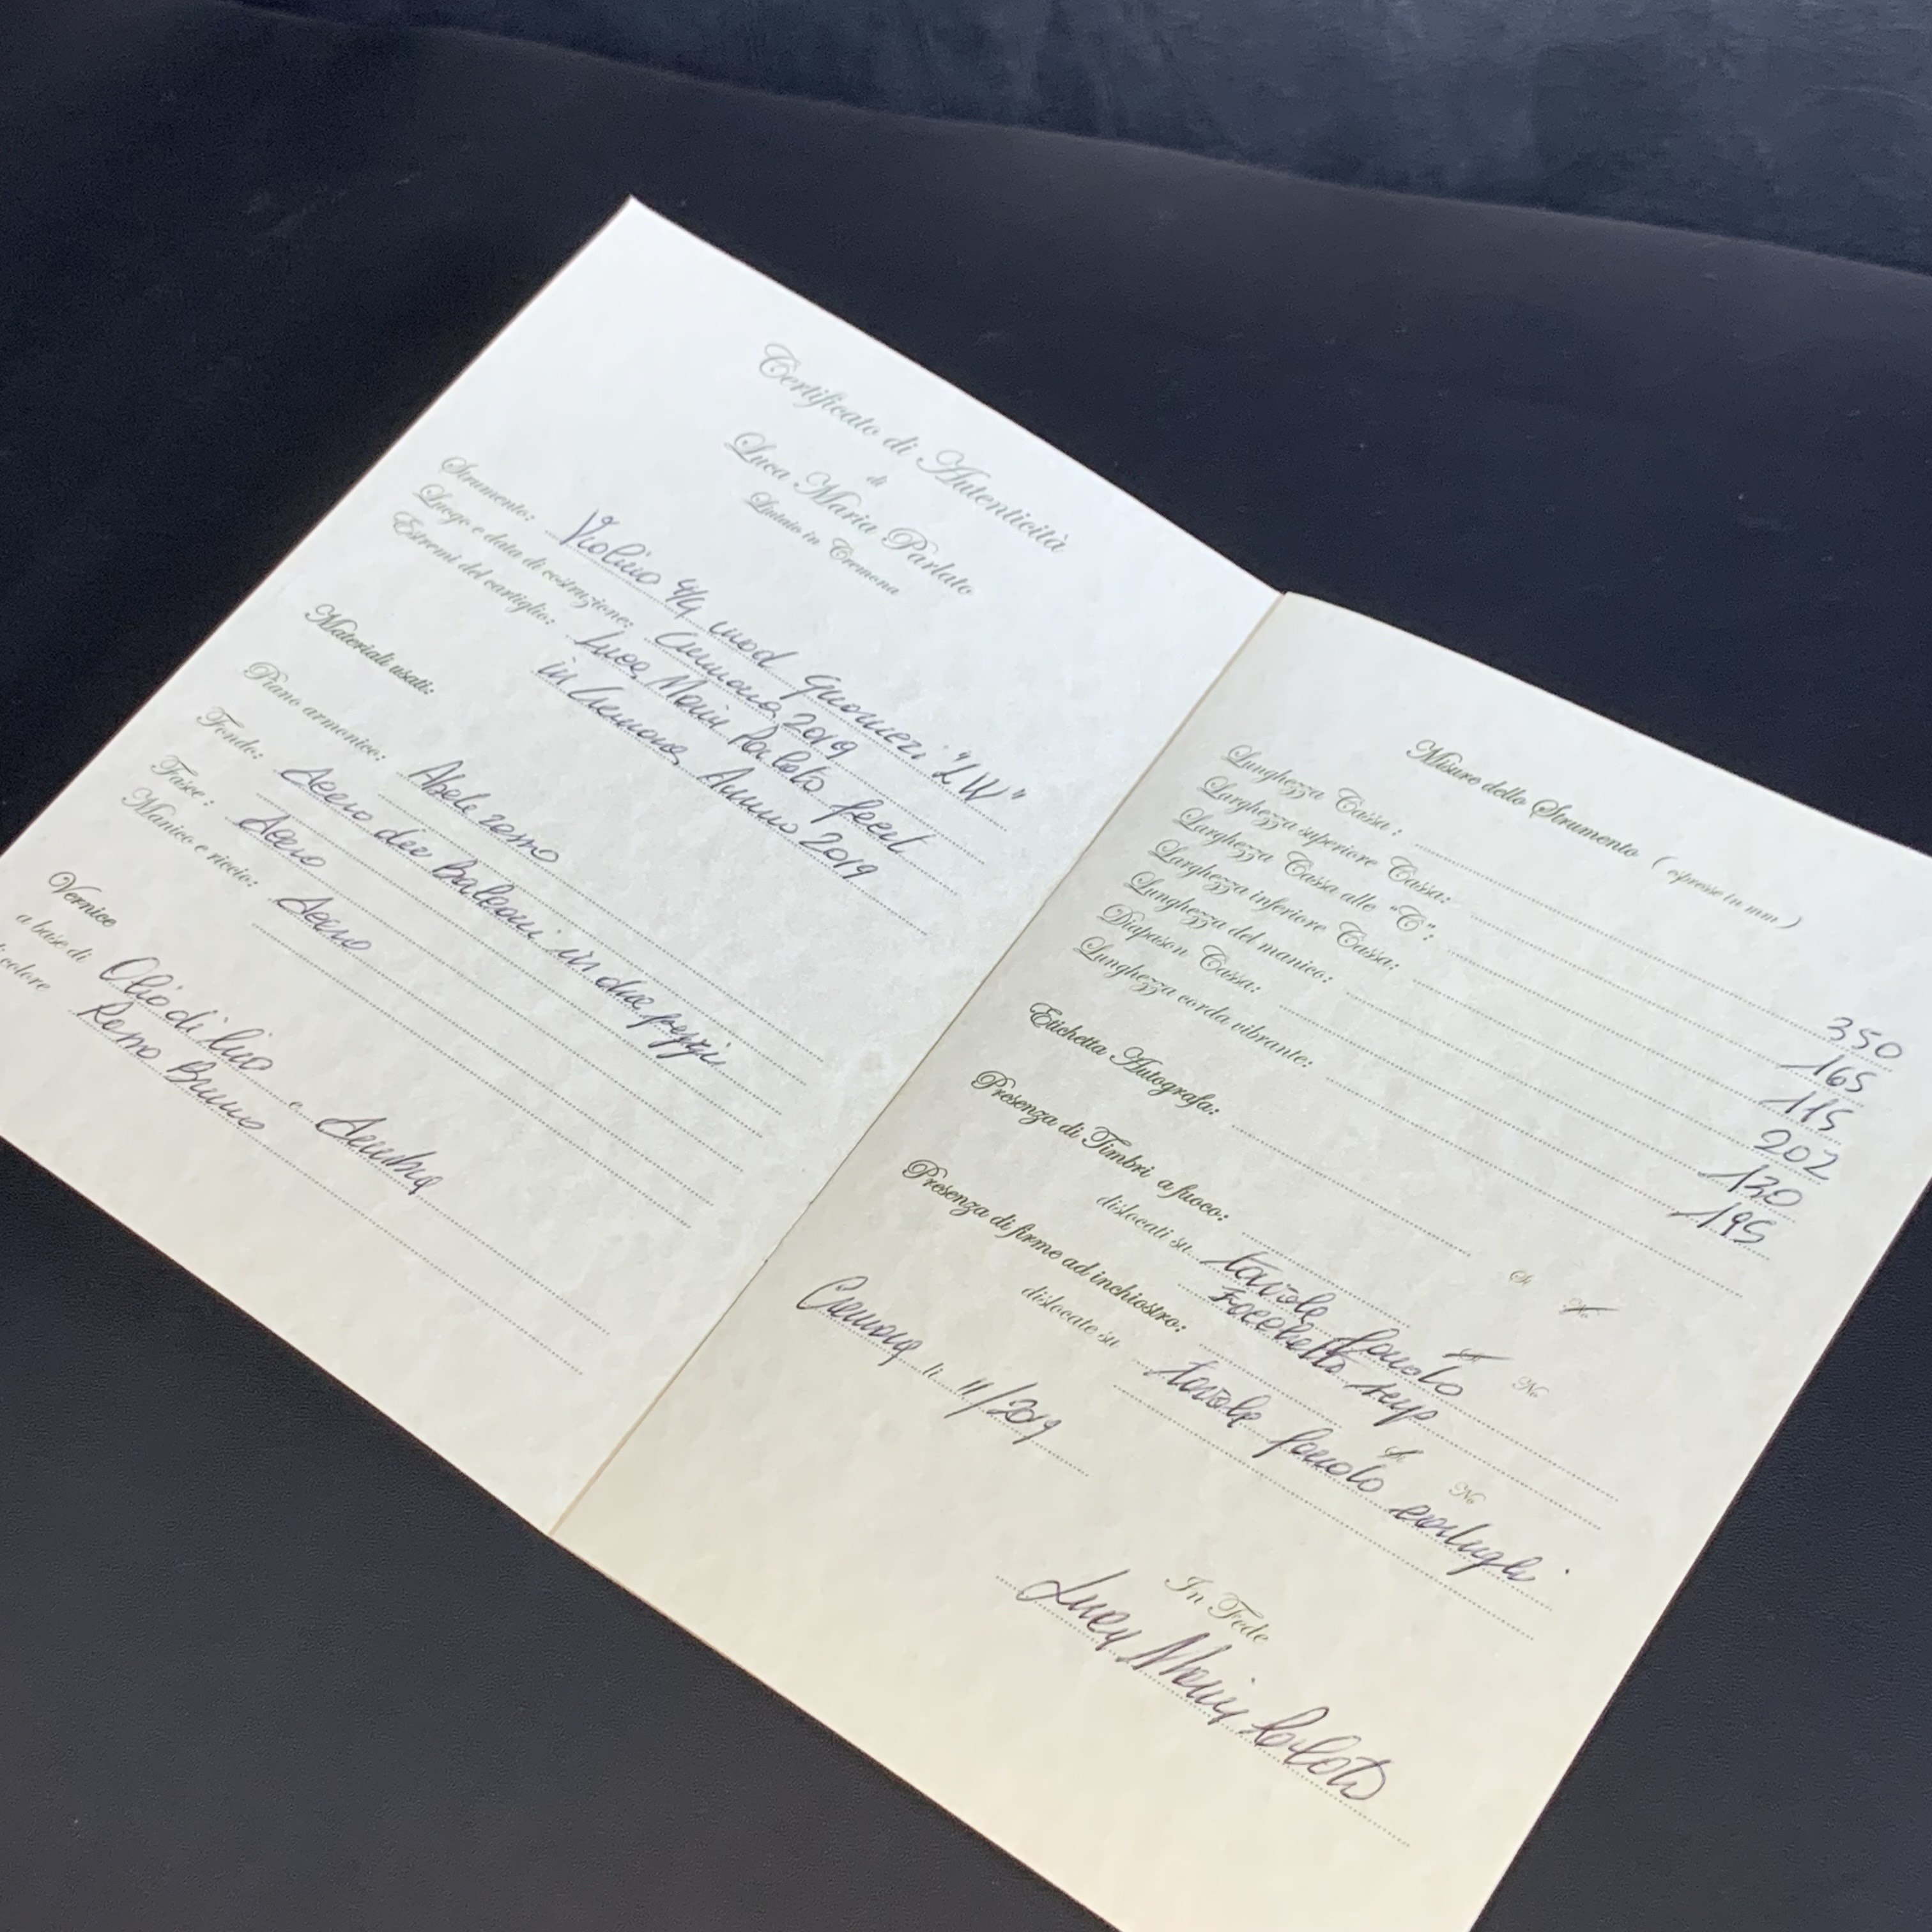 Certificato di Autenticità
di
Luca Maria Parlato
Liutaio in Cremona
Strumento: Violino 4/4 mod Guarneri "LW"
Luogo e data di costruzione: Cremona 2019
Estremi del cartiglio: Luca Maria Parlato fecit
in Cremona Anno 2019
Materiali usati:
Piano armonico: Abete rosso
Fondo: Acero dei Balcani in due pezzi
Fasce: Acero
Manico e riccio: Acero
Vernice
a base di Olio di lino e
colore Rosso Bruno
Misure dello Strumento ( espresse in mm )
Lunghezza Cassa: 350
Larghezza superiore Cassa: 165
Larghezza Cassa alle "C": 115
Larghezza inferiore Cassa: 202
Lunghezza del manico: 130
Diapason Cassa: 195
Lunghezza corda vibrante:
Etichetta Autografa: Si No
Presenza di Timbri a fuoco: Si No
dislocati su tavola fondo
Presenza di firme ad inchiostro: Si No
dislocate su tavola fondo
Cremona li 11/2019
In Fede
Luca Maria Parlato